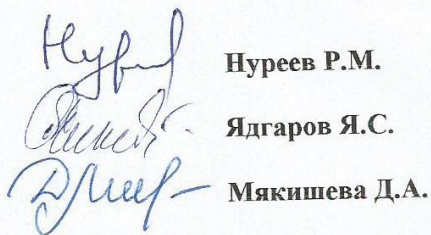 Нуреев Р.М.
Ядгаров Я.С.
Мякишева Д.А.